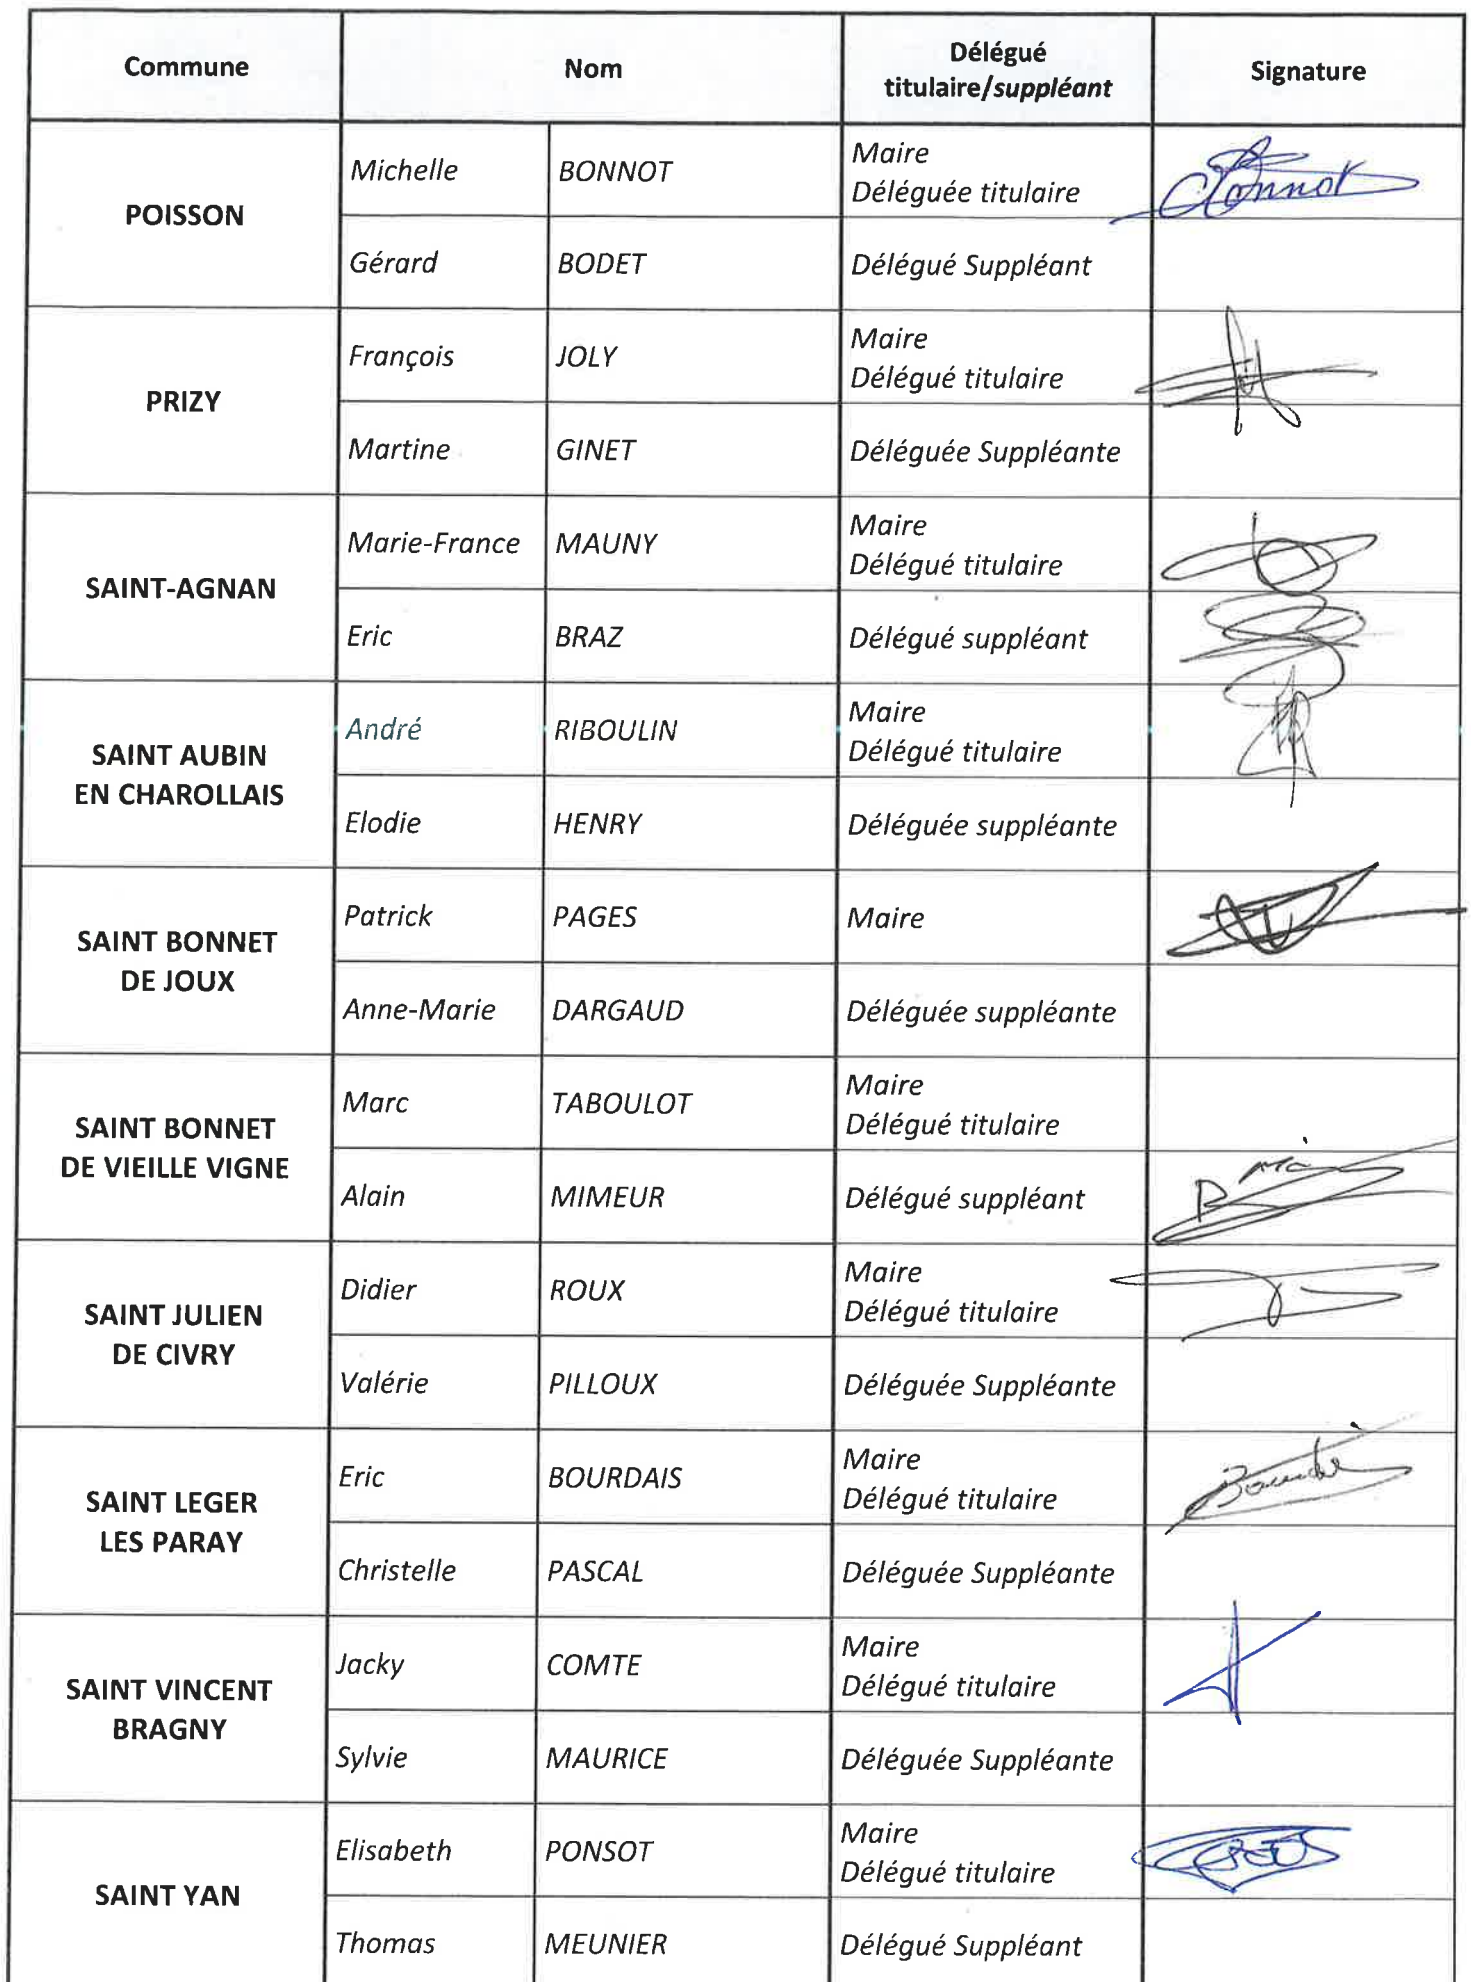 Commune Nom Délégué titulaire/suppléant Signature
POISSON
Michelle BONNOT Maire
Déléguée titulaire
Bonnot
Gérard BODET Délégué Suppléant
PRIZY
François JOLY Maire
Délégué titulaire
Martine GINET Déléguée Suppléante
SAINT-AGNAN
Marie-France MAUNY Maire
Délégué titulaire
Eric BRAZ Délégué suppléant
SAINT AUBIN
EN CHAROLLAIS
André RIBOULIN Maire
Délégué titulaire
Elodie HENRY Déléguée suppléante
SAINT BONNET
DE JOUX
Patrick PAGES Maire
Anne-Marie DARGAUD Déléguée suppléante
SAINT BONNET
DE VIEILLE VIGNE
Marc TABOULOT Maire
Délégué titulaire
Alain MIMEUR Délégué suppléant
SAINT JULIEN
DE CIVRY
Didier ROUX Maire
Délégué titulaire
Valérie PILLOUX Déléguée Suppléante
SAINT LEGER
LES PARAY
Eric BOURDAIS Maire
Délégué titulaire
Christelle PASCAL Déléguée Suppléante
SAINT VINCENT
BRAGNY
Jacky COMTE Maire
Délégué titulaire
Sylvie MAURICE Déléguée Suppléante
SAINT YAN
Elisabeth PONSOT Maire
Délégué titulaire
Thomas MEUNIER Délégué Suppléant